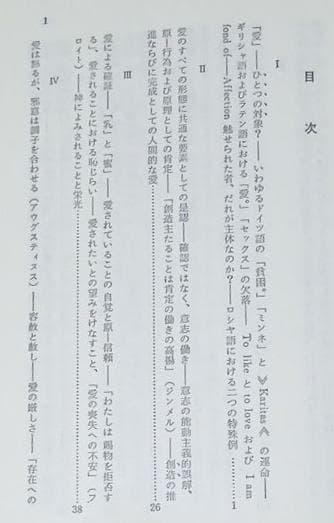 目次
I
「愛」――ひとつの対象？――いわゆるドイツ語の「貧困。」「ミンネ」と《Karitas》の運命――
ギリシャ語およびラテン語における「愛。」「セックス」の欠落―― To like と to love および I am
fond of――Affection 魅せられた者、だれが主体なのか？――ロシヤ語における二つの特殊例……1
II
愛のすべての形態に共通な要素としての是認――確認ではなく、意志の働き――意志の能動主義的誤解、
原―行為および原理としての肯定――「創造主たることは肯定の働きの高揚」（ジンメル）――創造の推
進ならびに完成としての人間的な愛……26
III
愛による確証――「乳」と「蜜」――愛されていることの自覚と原―信頼――「わたしは賜物を拒否す
る」、愛されることにおける恥じらい――愛されたいとの望みをけなすこと、「愛の喪失への不安」（フ
ロイト）――神によみされることと栄光……38
IV
愛は譴るが、邪意は調子を合わせる（アウグスティヌス）――容赦と赦し――愛の厳しさ――「存在への
1